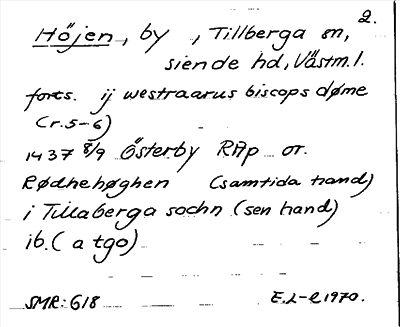 2.
Höjen, by , Tillberga sn,
siende hd, Västm. l.
forts. ij westraarus biscops døme
(r. 5-6)
1437 8/9 Österby RAp or.
Rødhehøghen (samtida hand)
i Tillaberga sochn (sen hand)
ib. (a tgo)
SMR: 618 E.L-l 1970.